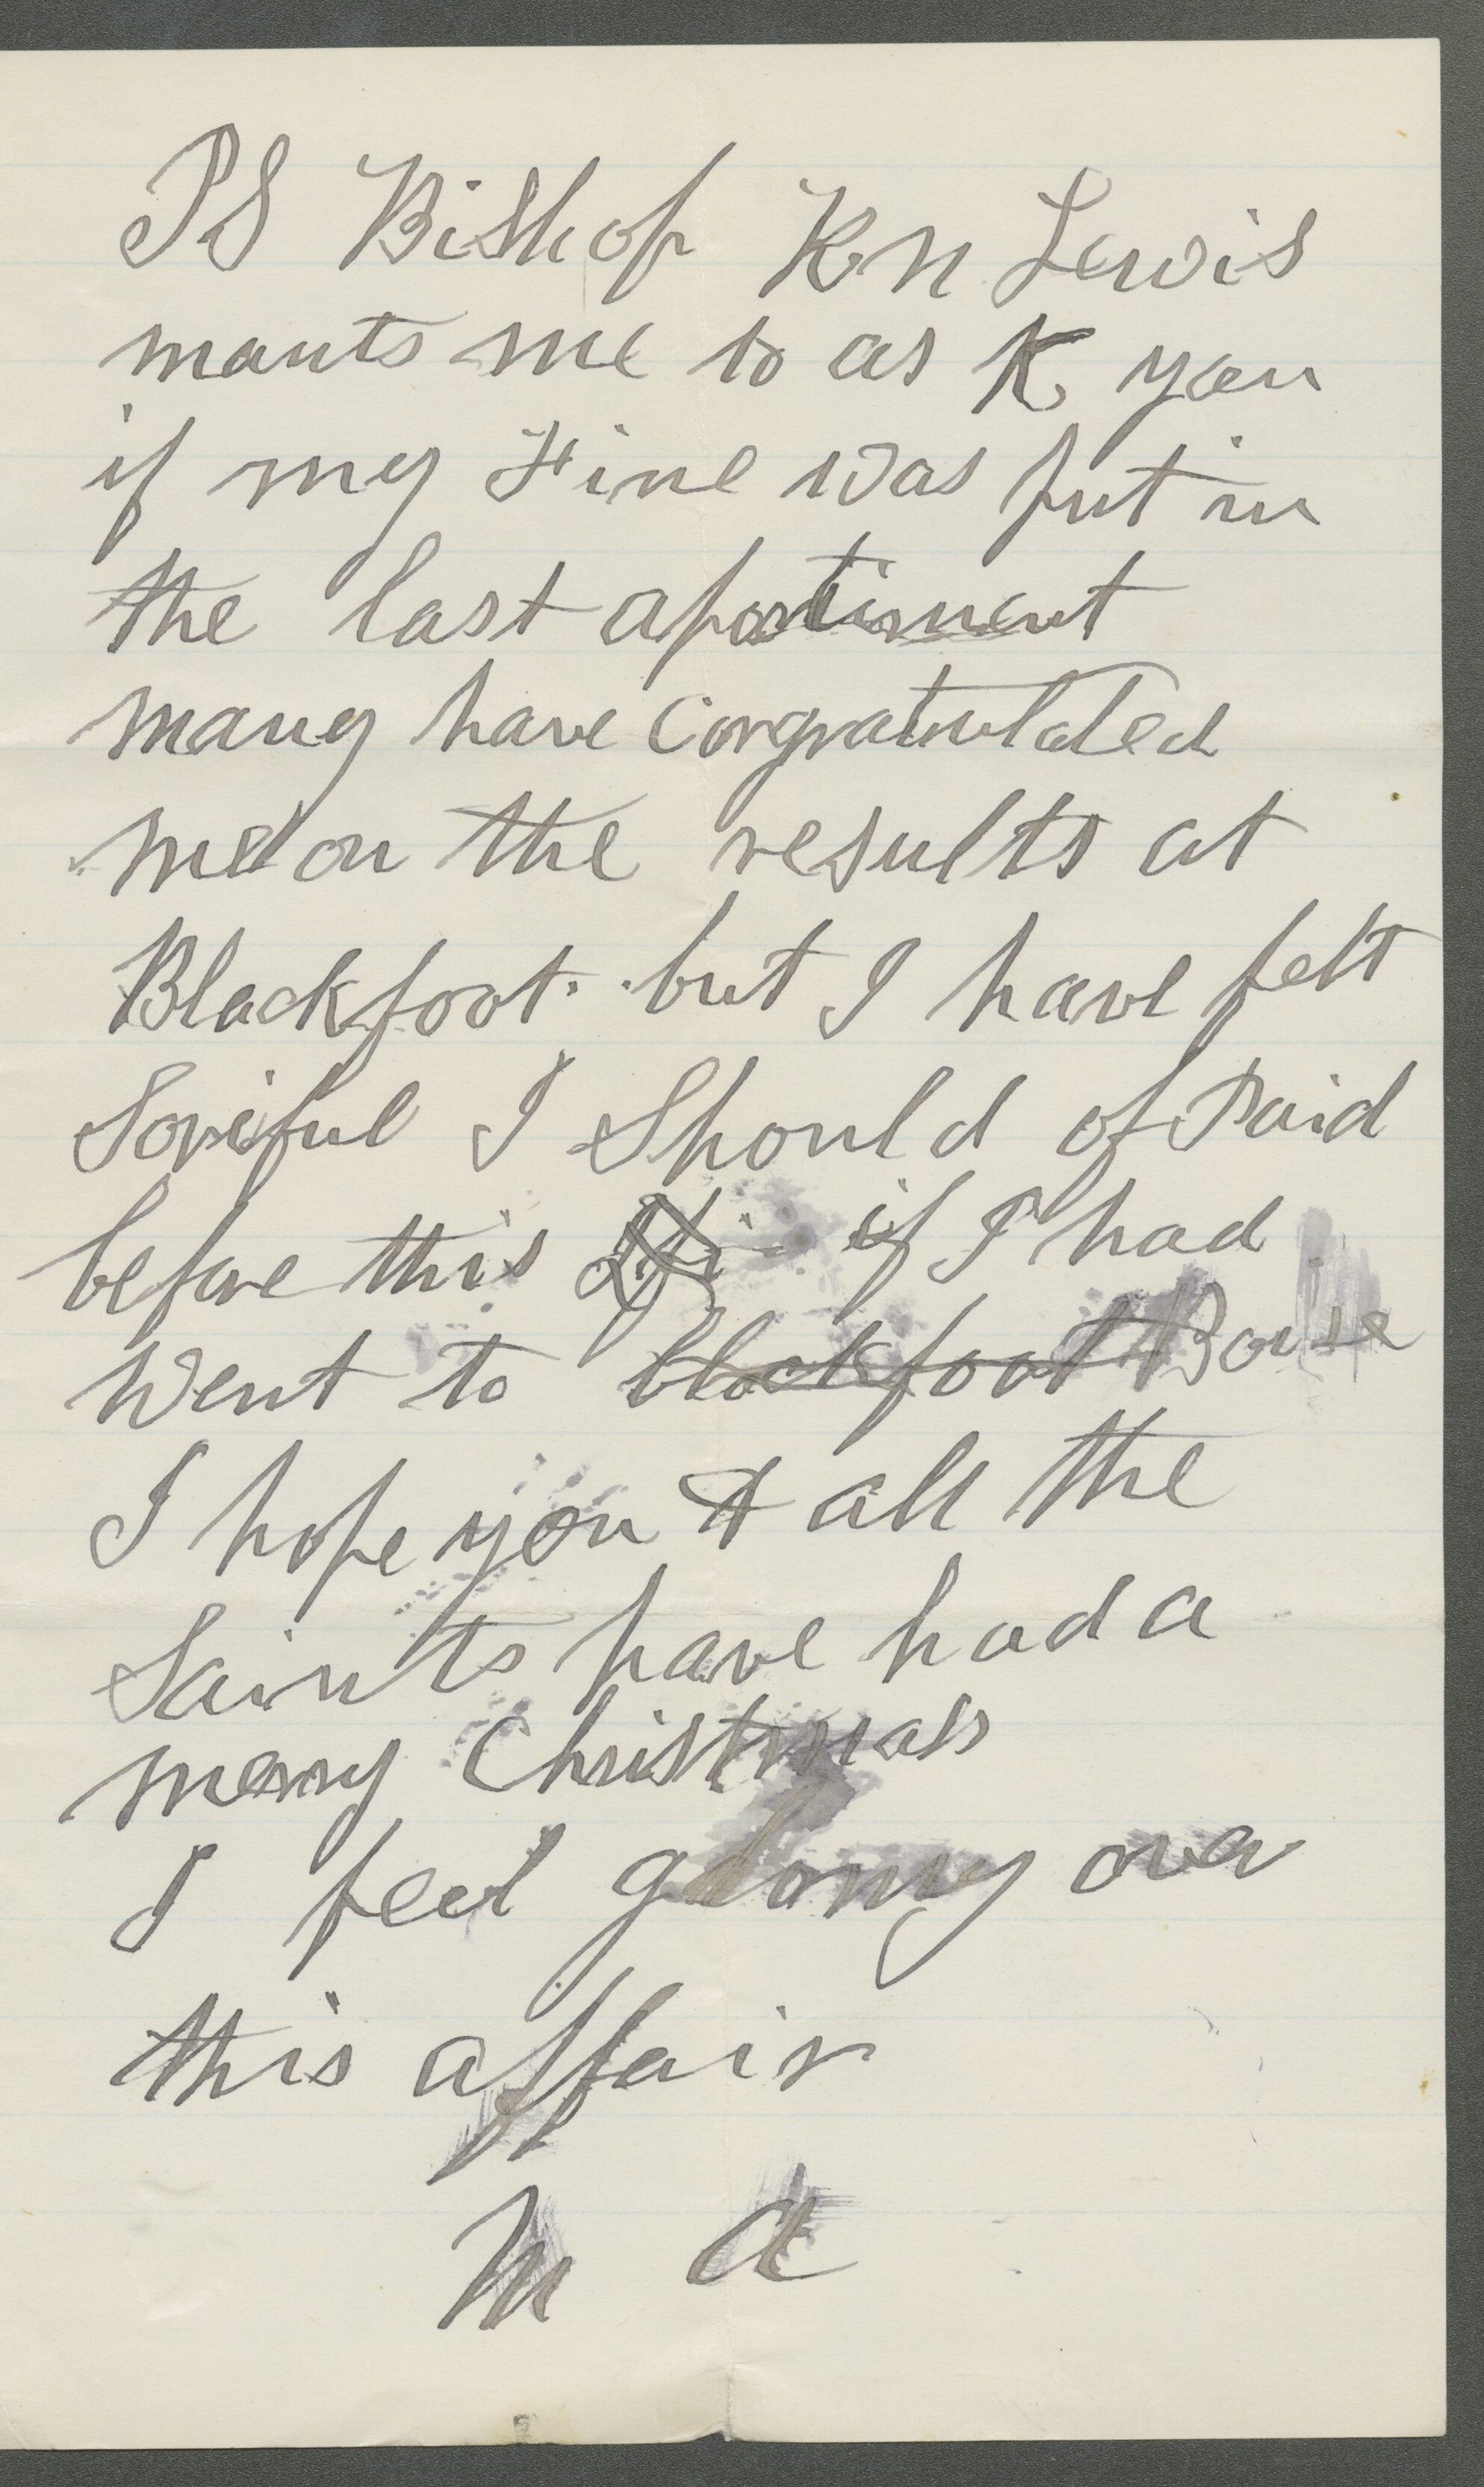 PS Bishop K N Lewis
wants me to as K you
if my Fine was put in
the last aportiment
many have congratulated
me on the results at
Blackfoot. but I have felt
Soriful I Should of Paid
before this if I had
went to blackfoot Boise
I hope you & all the
Saints have had a
merry Christmass
I feel gloomy over
this affair
M A